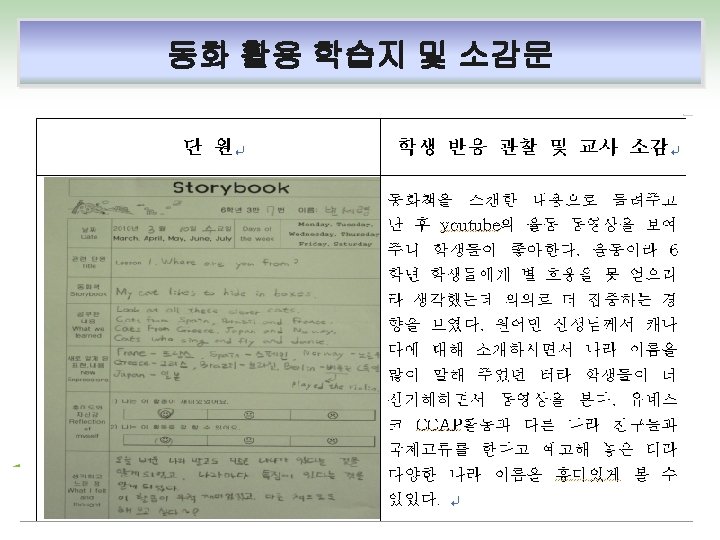 동화 활용 학습지 및 소감문
단 원
학생 반응 관찰 및 교사 소감
Storybook
6학년 3반 7번 이름:
날짜 Date
2010년 3월 10일 수요일
March, April, May, June, July
Days of the week
Monday, Tuesday, Wednesday, Thursday, Friday, Saturday
관련 단원 Title
Lesson 1. Where are you from?
동화책 Storybook
My cat likes to hide in boxes.
공부한 내용 What we learned
Look at all these clever cats.
Cats from Spain, Brazil and France.
Cats from Greece, Japan and Norway.
Cats who sing and fly and dance.
새로 알게 된 표현, 내용 new Expressions
France - 프랑스, Spain - 스페인, Norway -
Greece - 그리스, Brazil - 브라질, Berlin -
Japan - 일본
Played the violin
흥미도와 자신감 Reflection of myself
1) 나는 이 활동이 재미있었어요.
2) 나는 이 활동을 잘 할 수 있어요.
생각하고 느낀 점 What I felt and thought
동화책을 스캔한 내용으로 들려주고
난 후 youtube의 율동 동영상을 보여
주니 학생들이 좋아한다. 율동이라 6
학년 학생들에게 별 호응을 못 얻으리
라 생각했는데 의외로 더 집중하는 경
향을 보였다. 원어민 선생님께서 캐나
다에 대해 소개하시면서 나라 이름을
많이 말해 주었던 터라 학생들이 더
신기해하면서 동영상을 본다. 유네스
코 CCAP활동과 다른 나라 친구들과
국제교류를 한다고 예고해 놓은 터라
다양한 나라 이름을 흥미있게 볼 수
있었다.